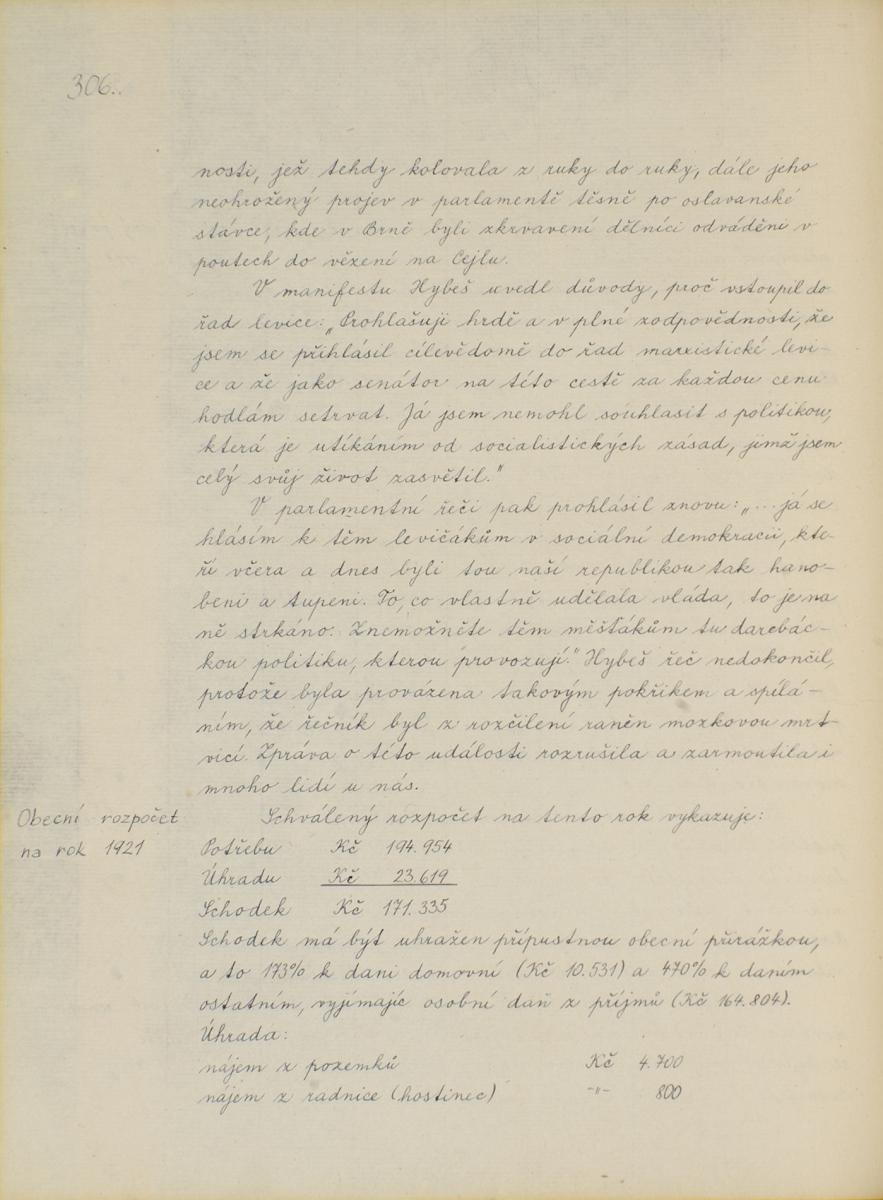 306.
nosti, jež tehdy kolovala z ruky do ruky, dále jeho
neohrožený projev v parlamentě těsně po oslavanské
stávce, kde v Brně byli zkrvavení dělníci odváděni v
poutech do vězení na Cejlu.
V manifestu Hybeš uvedl důvody, proč vstoupil do
řad levice: „Prohlašuji hrdě a v plné zodpovědnosti, že
jsem se přihlásil cílevědomě do řad marxistické levi-
ce a že jako senátor na této cestě za každou cenu
hodlám setrvat. Já jsem nemohl souhlasit s politikou,
která je utíkáním od socialistických zásad, jimž jsem
celý svůj život zasvětil."
V parlamentní řeči pak prohlásil znovu: „... já se
hlásím k těm levičákům v sociální demokracii, kte-
ří včera a dnes byli tou naší republikou tak hano-
beni a tupeni. To, co vlastně udělala vláda, to je na
ně strkáno. Znemožněte těm měšťákům tu darebác-
kou politiku, kterou provozují." Hybeš řeč nedokončil,
protože byla provázena takovým pokřikem a spílá-
ním, že řečník byl z rozčilení raněn mozkovou mrt-
vicí. Zpráva o této události rozrušila a zarmoutila i
mnoho lidí u nás.
Obecní rozpočet
na rok 1921
Schválený rozpočet na tento rok vykazuje:
Potřebu Kč 194.954
Úhradu Kč 23.619
Schodek Kč 171.335
Schodek má být uhražen přípustnou obecní přirážkou,
a to 173% k dani domovní (Kč 10.531) a 470% k daním
ostatním, vyjímajíc osobní daň z příjmů (Kč 164.804).
Úhrada:
nájem z pozemků Kč 4.700
nájem z radnice (hostinec) -"- 800